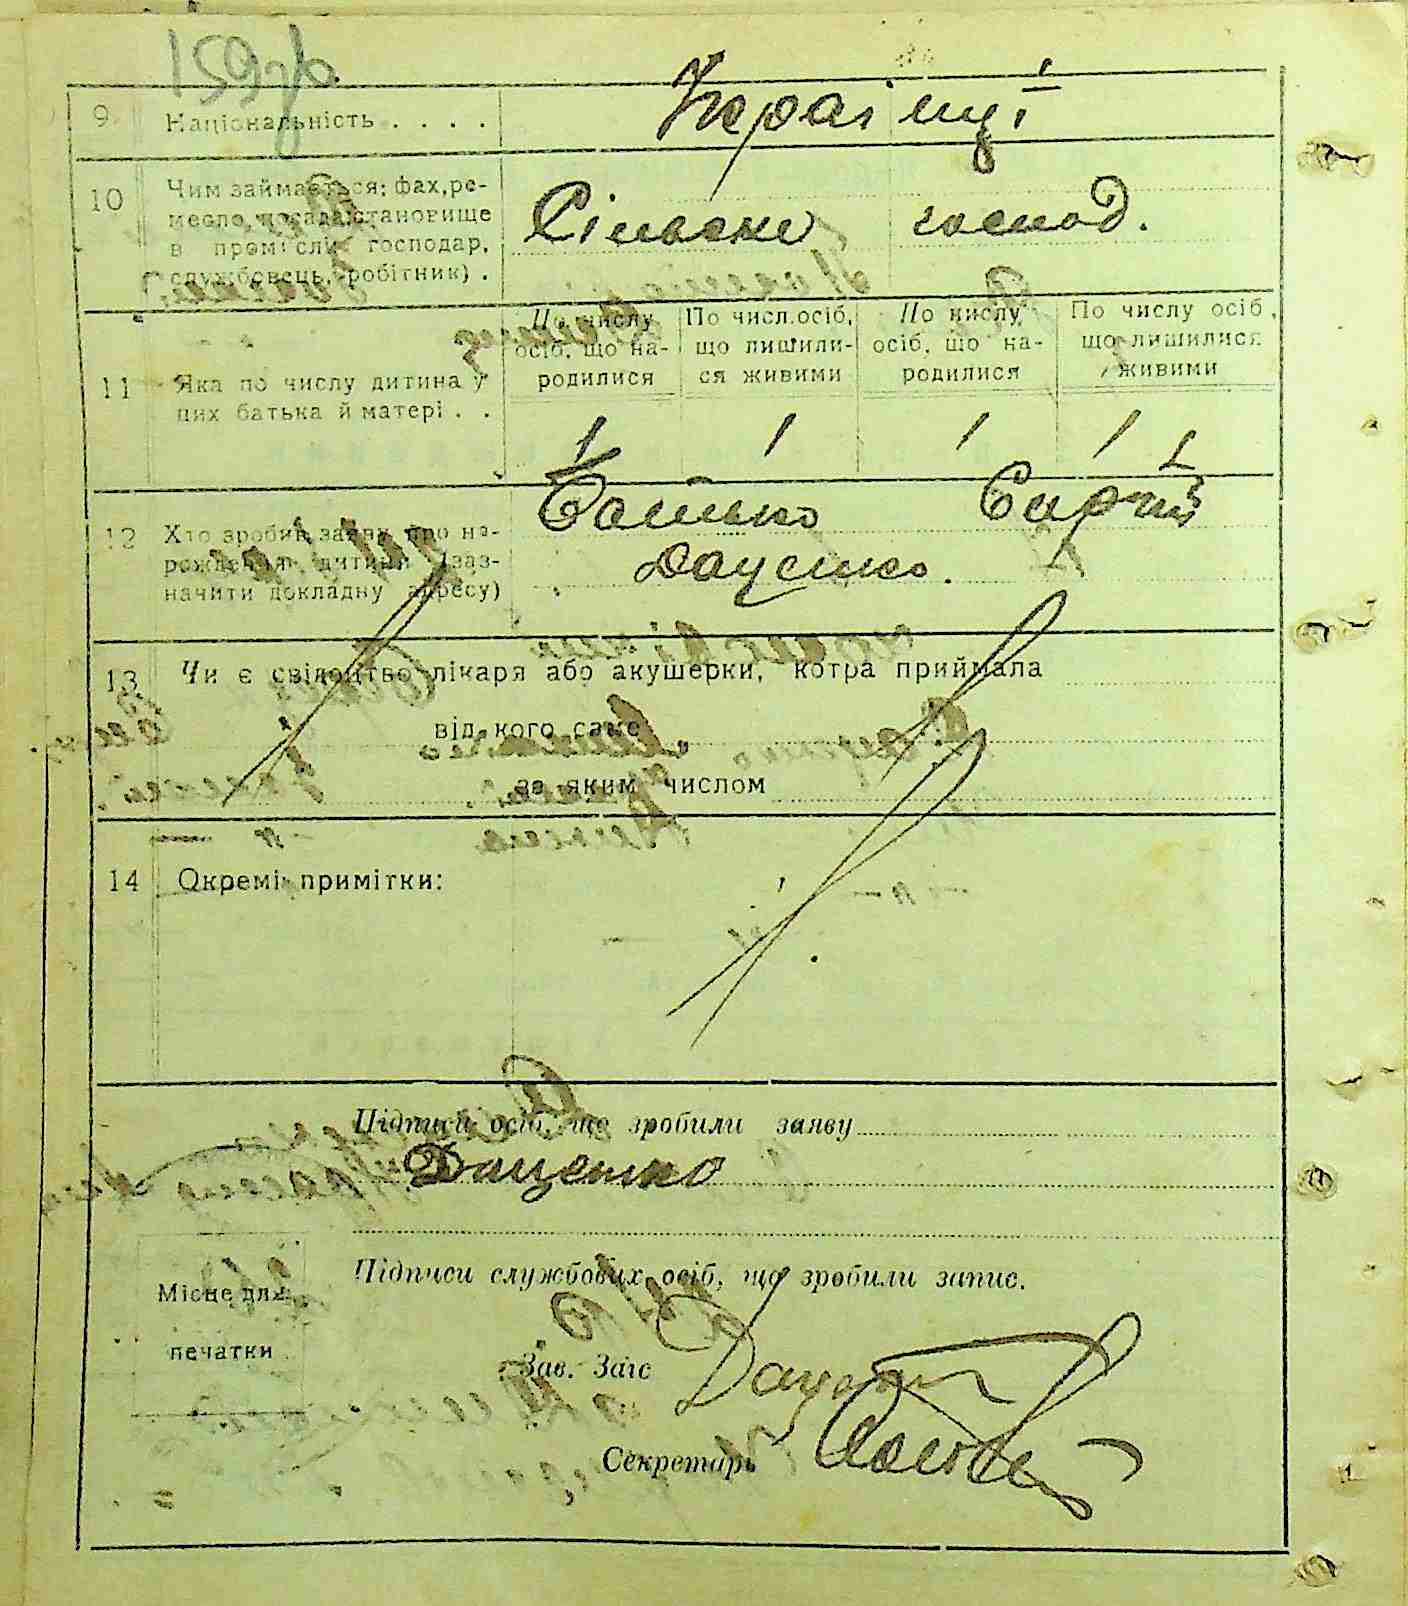 159зв
9 Національність . . . . Українці
10 Чим займається: фах, ре-
месло, посада, становище
в промислі господар,
службовець, робітник) . Сільське господ.
По числу осіб, що на-родилися
По числ. осіб, що лишили-ся живими
По числу осіб, що на-родилися
По числу осіб, що лишилися живими
11 Яка по числу дитина у
цих батька й матері . . 1 1 1 1
12 Хто зробив заяву про на-
родження дитини (заз-
начити докладну адресу)
Батько Сергій
Даценко.
13 Чи є свідоцтво лікаря або акушерки, котра приймала
від кого саме
за яким числом
14 Окремі примітки:
Підписи осіб, що зробили заяву
Даценко
Місце для
печатки
Підписи службових осіб, що зробили запис.
Зав. Загс Даценко
Секретарь